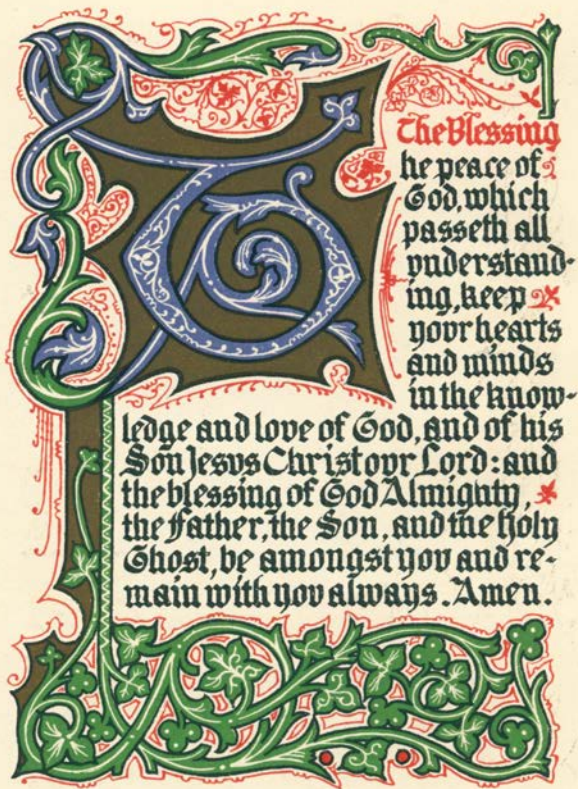 The Blessing
The peace of
God, which
passeth all
vnderstand-
ing, keep
yovr hearts
and minds
in the know-
ledge and love of God, and of his
Son Jesvs Christ ovr Lord: and
the blessing of God Almighty,
the Father, the Son, and the Holy
Ghost, be amongst yov and re-
main with yov always. Amen.